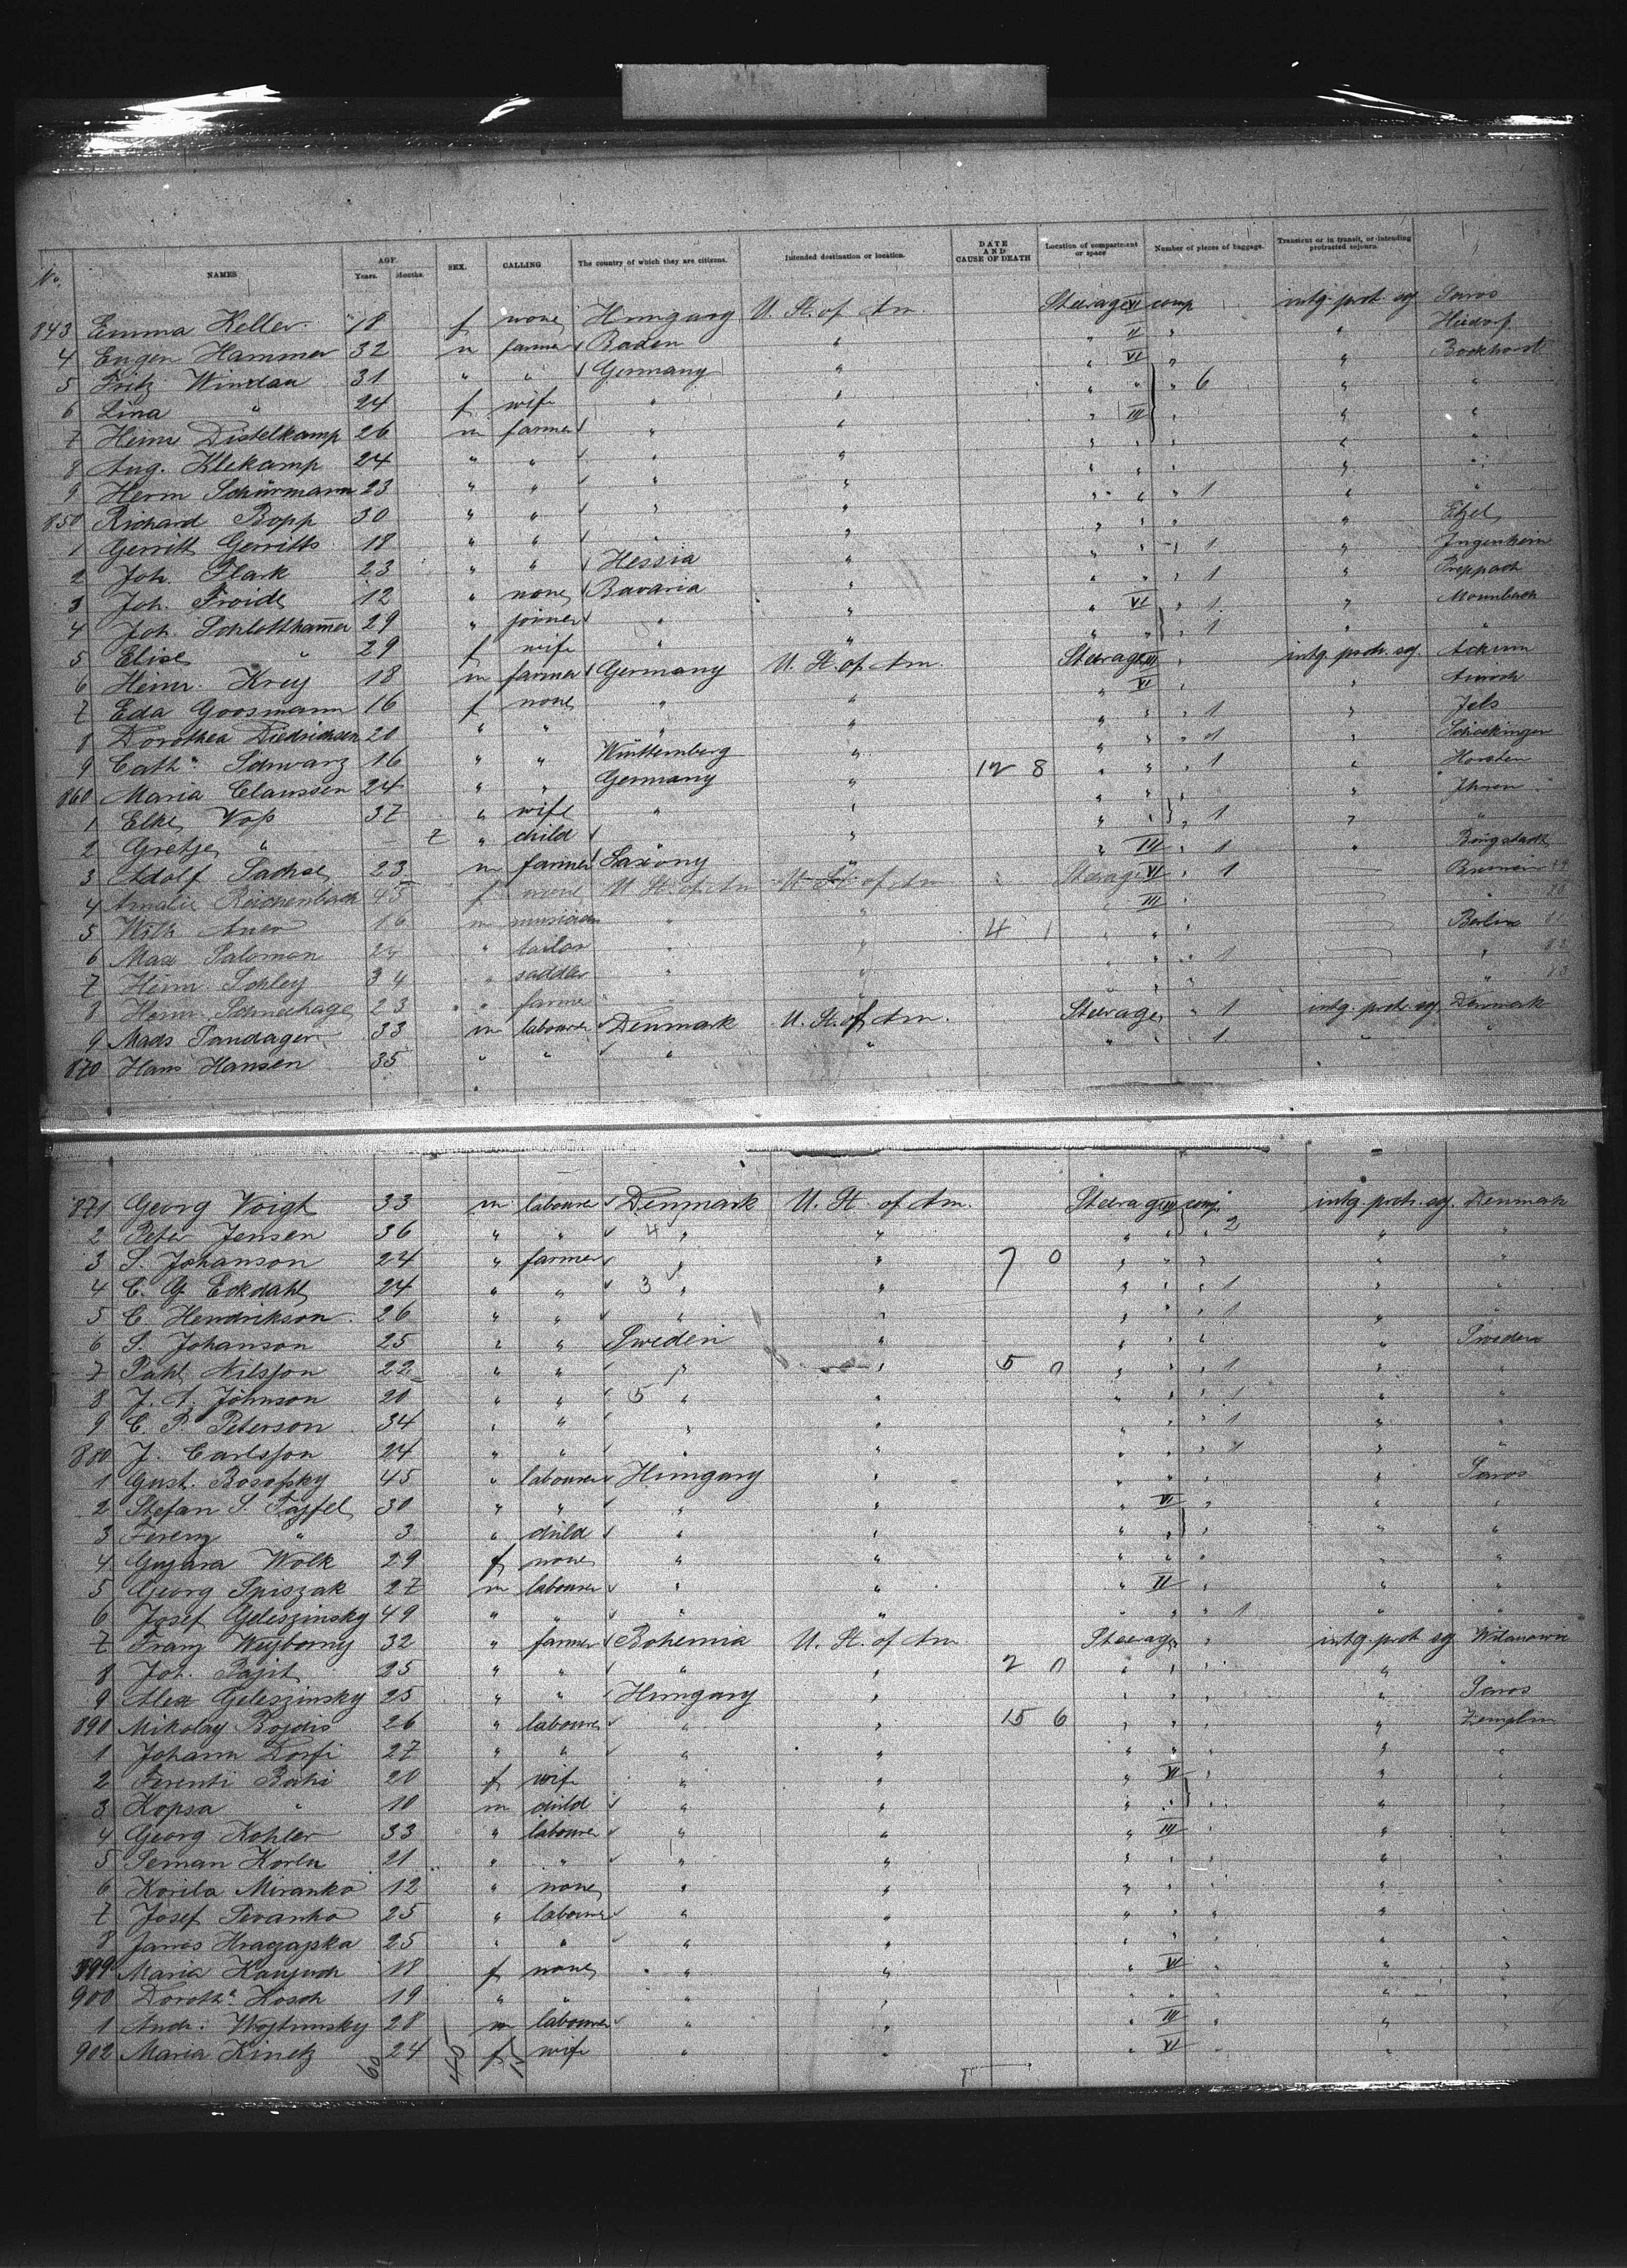 No. NAMES AGE. Years. Months. SEX. CALLING The country of which they are citizens. Intended destination or location. DATE AND CAUSE OF DEATH Location of compartment or space Number of pieces of baggage. Transient or in transit, or intending protracted sojourn.
843 Emma Keller 18 f none Hungary U. St. of Am. Steerage VI comp intg. prot. soj Saros
4 Eugen Hammer 32 m farmer Baden " " II " "
5 Fritz Windau 31 " " Germany " " VI " " Bockhorst
6 Lina " 24 f wife " " " " " 6 " "
7 Heinr Distelkamp 26 m farmer " " " III " " "
8 Aug. Klekamp 24 " " " " " " " " "
9 Herm Schürmann 23 " " " " " " " " "
850 Richard Bopp 30 " " " " " " " 1 " "
1 Gerritt Gerritts 18 " " " " " " " " Etzel
2 Joh. Flark 23 " " Hessia " " " " 1 "
3 Joh. Froide 12 " none Bavaria " " " " 1 "
4 Joh. Schlotthamer 29 " joiner " " " VI " 1 "
5 Elise " 29 f wife " " " " " 1 " "
6 Heinr. Krey 18 m farmer Germany U. St. of Am. Steerage III " intg. protr. soj.
7 Eda Goosmann 16 f none " " " VI " "
8 Dorothea Diedrichsen 20 " " " " " " " 1 " Jels
9 Cath. Schwarz 16 " " Württemberg " " " " 1 " Schöckingen
860 Maria Claussen 24 " " Germany " 12 8 " " " 1 " Horsten
1 Elke Voß 37 " wife " " " " " "
2 Gretje " 7 " child " " " " " 1 " "
3 Adolf Sachse 23 m farmer Saxony " " III " 1 "
4 Amalie Reichenbach 45 f none U. St. of Am U. St. of Am Steerage VI " 1 Bremen 79
5 Wilh Auer 16 m musician " " " III " " 80
6 Max Salomon " tailor " " 4 1 " " " Berlin 81
7 Heinr. Schley 34 " saddler " " " " " 1 " 82
8 Herm. Schneehage 23 " farmer " " " " " " 83
9 Mads Sandager 33 m labourer Denmark U. St. of Am. Steerage " 1 intg. protr. soj. Denmark
870 Hans Hansen 35 " " " " " " " 1 " "
871 Georg Voigt 33 m labourer Denmark U. St. of Am. Steerage comp. intg. protr. soj. Denmark
2 Peter Jensen 36 " " 4 " " " " " 2 " "
3 S. Johanson 24 " farmer " " 7 0 " " " " "
4 C. G. Eckdahl 24 " " 3 " " " " " 1 " "
5 C. Hendrikson 26 " " " " " " " 1 " "
6 S. Johanson 25 " " Sweden " " " " " Sweden
7 Pahl Nilsson 22 " " " " 5 0 " " " 1 " "
8 J. A. Johnson 20 " " 5 " " " " " 1 " "
9 C. P. Peterson 34 " " " " " " " 1 " "
880 J. Carlsson 24 " " " " " " " 1 " "
1 Gust. Bosofsky 45 " labourer Hungary " " " " " Saros
2 Stefan S. Tajfel 30 " " " " " VI " " "
3 Ferenz " 3 " child " " " " " " "
4 Gujara Wolk 29 f none " " " " " " "
5 Georg Spiszak 27 m labourer " " " II " " "
6 Josef Geleszinsky 49 " " " " " " " 1 " "
7 Franz Wujborny 32 " farmer Bohemia U. St. of Am Steerage " " intg. prot. soj Wilanowa
8 Joh. Pajit 25 " " " " 2 0 " " " " "
9 Alex Geleszinsky 25 " " Hungary " " " " " Saros
890 Mikolay Bojdis 26 " labourer " " 15 6 " " " " Zemplin
1 Johann Dorfi 27 " " " " " " " " "
2 Ferenti Bahi 20 f wife " " " VI " " "
3 Kopsa " 10 m child " " " " " " "
4 Georg Kohler 33 " labourer " " " III " " "
5 Seman Korla 21 " " " " " " " " "
6 Korila Miranko 12 " none " " " " " " "
7 Josef Sivanko 25 " labourer " " " " " " "
8 Janos Hraczapka 25 " " " " " " " " "
899 Maria Kaujuch 18 f none " " " VI " " "
900 Doroth. Kosch 19 " " " " " " " " "
1 Andr. Wojtunsky 28 m labourer " " " III " " "
902 Maria Kinetz 24 f wife " " " VI " " "
60 45 15